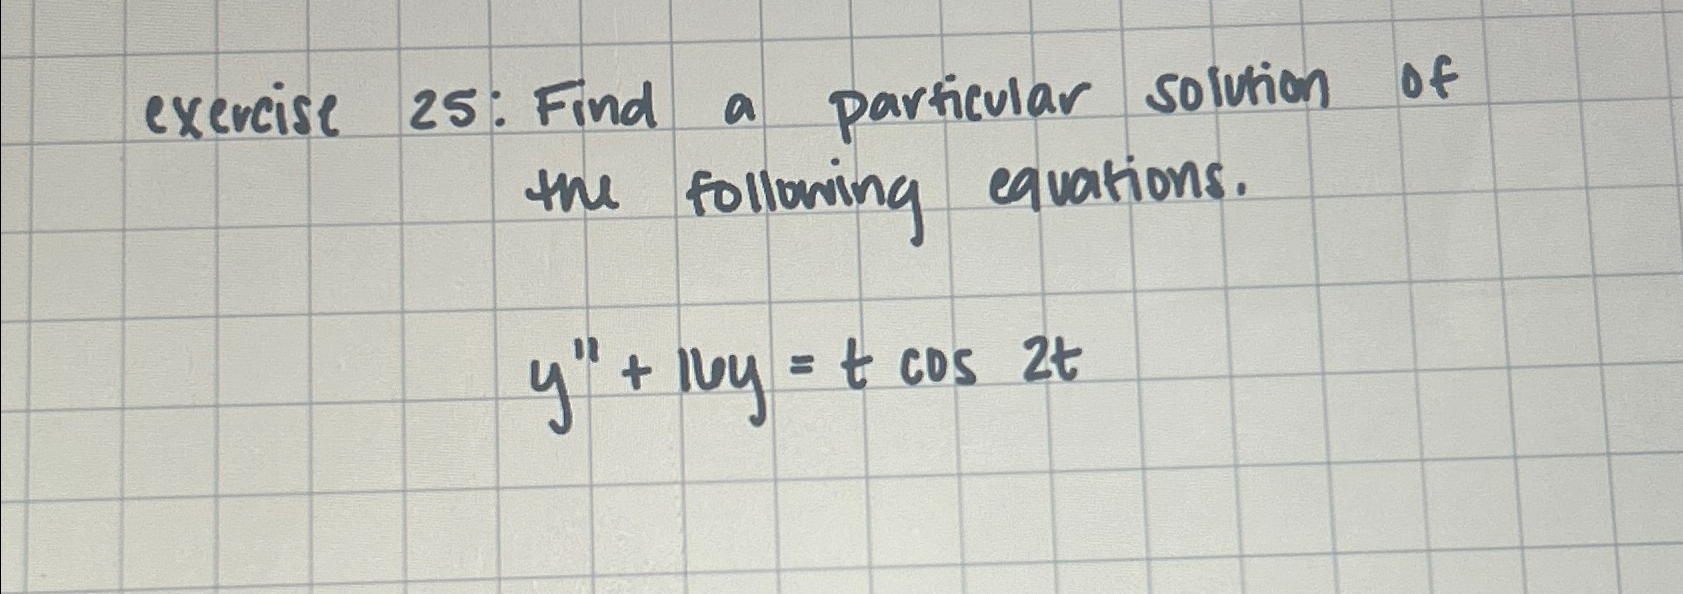 exercise 25: Find a particular solution of
the following equations.
y" + 16y = t cos 2t